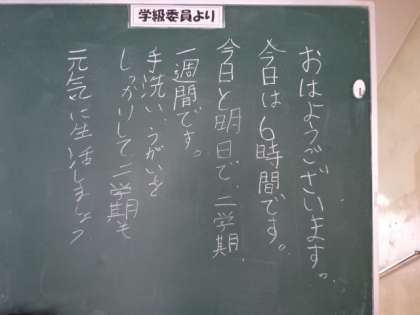 学級委員より
おはようございます。
今日は6時間です。
今日と明日で、二学期
一週間です。
手洗い、うがいを
しっかりして、二学期も
元気に生活しましょう